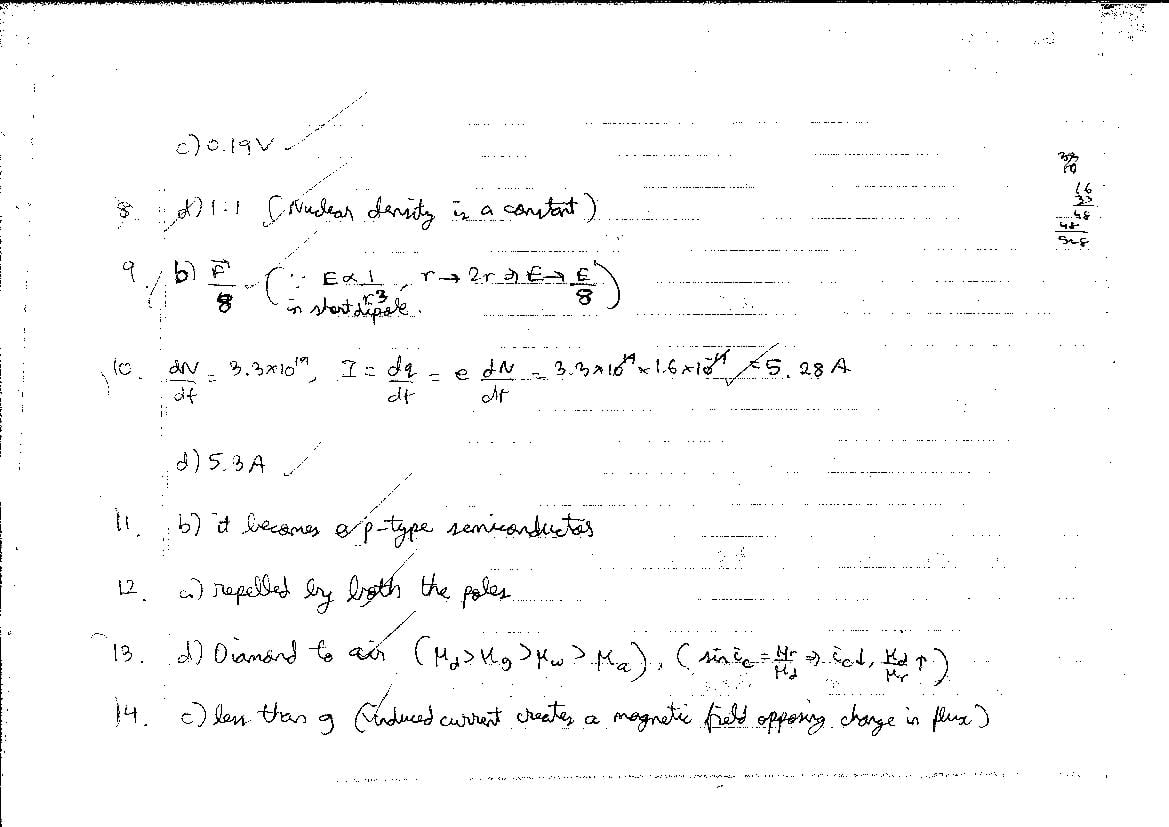 c) 0.19V
8. d) 1:1 (Nuclear density is a constant)
9. b) E/8 (∵ E ∝ 1/r³ in short dipole, r → 2r ⇒ E → E/8)
10. dN/dt = 3.3×10¹⁹, I = dq/dt = e dN/dt = 3.3×10¹⁹ × 1.6×10⁻¹⁹ = 5.28 A
d) 5.3 A
11. b) it becomes a p-type semiconductor
12. a) repelled by both the poles
13. d) Diamond to air (μd > μg > μw > μa), (sin ic = μr/μd ⇒ ic↓, μd/μr ↑)
14. c) less than g (induced current creates a magnetic field opposing change in flux)
16
33
48
48
528